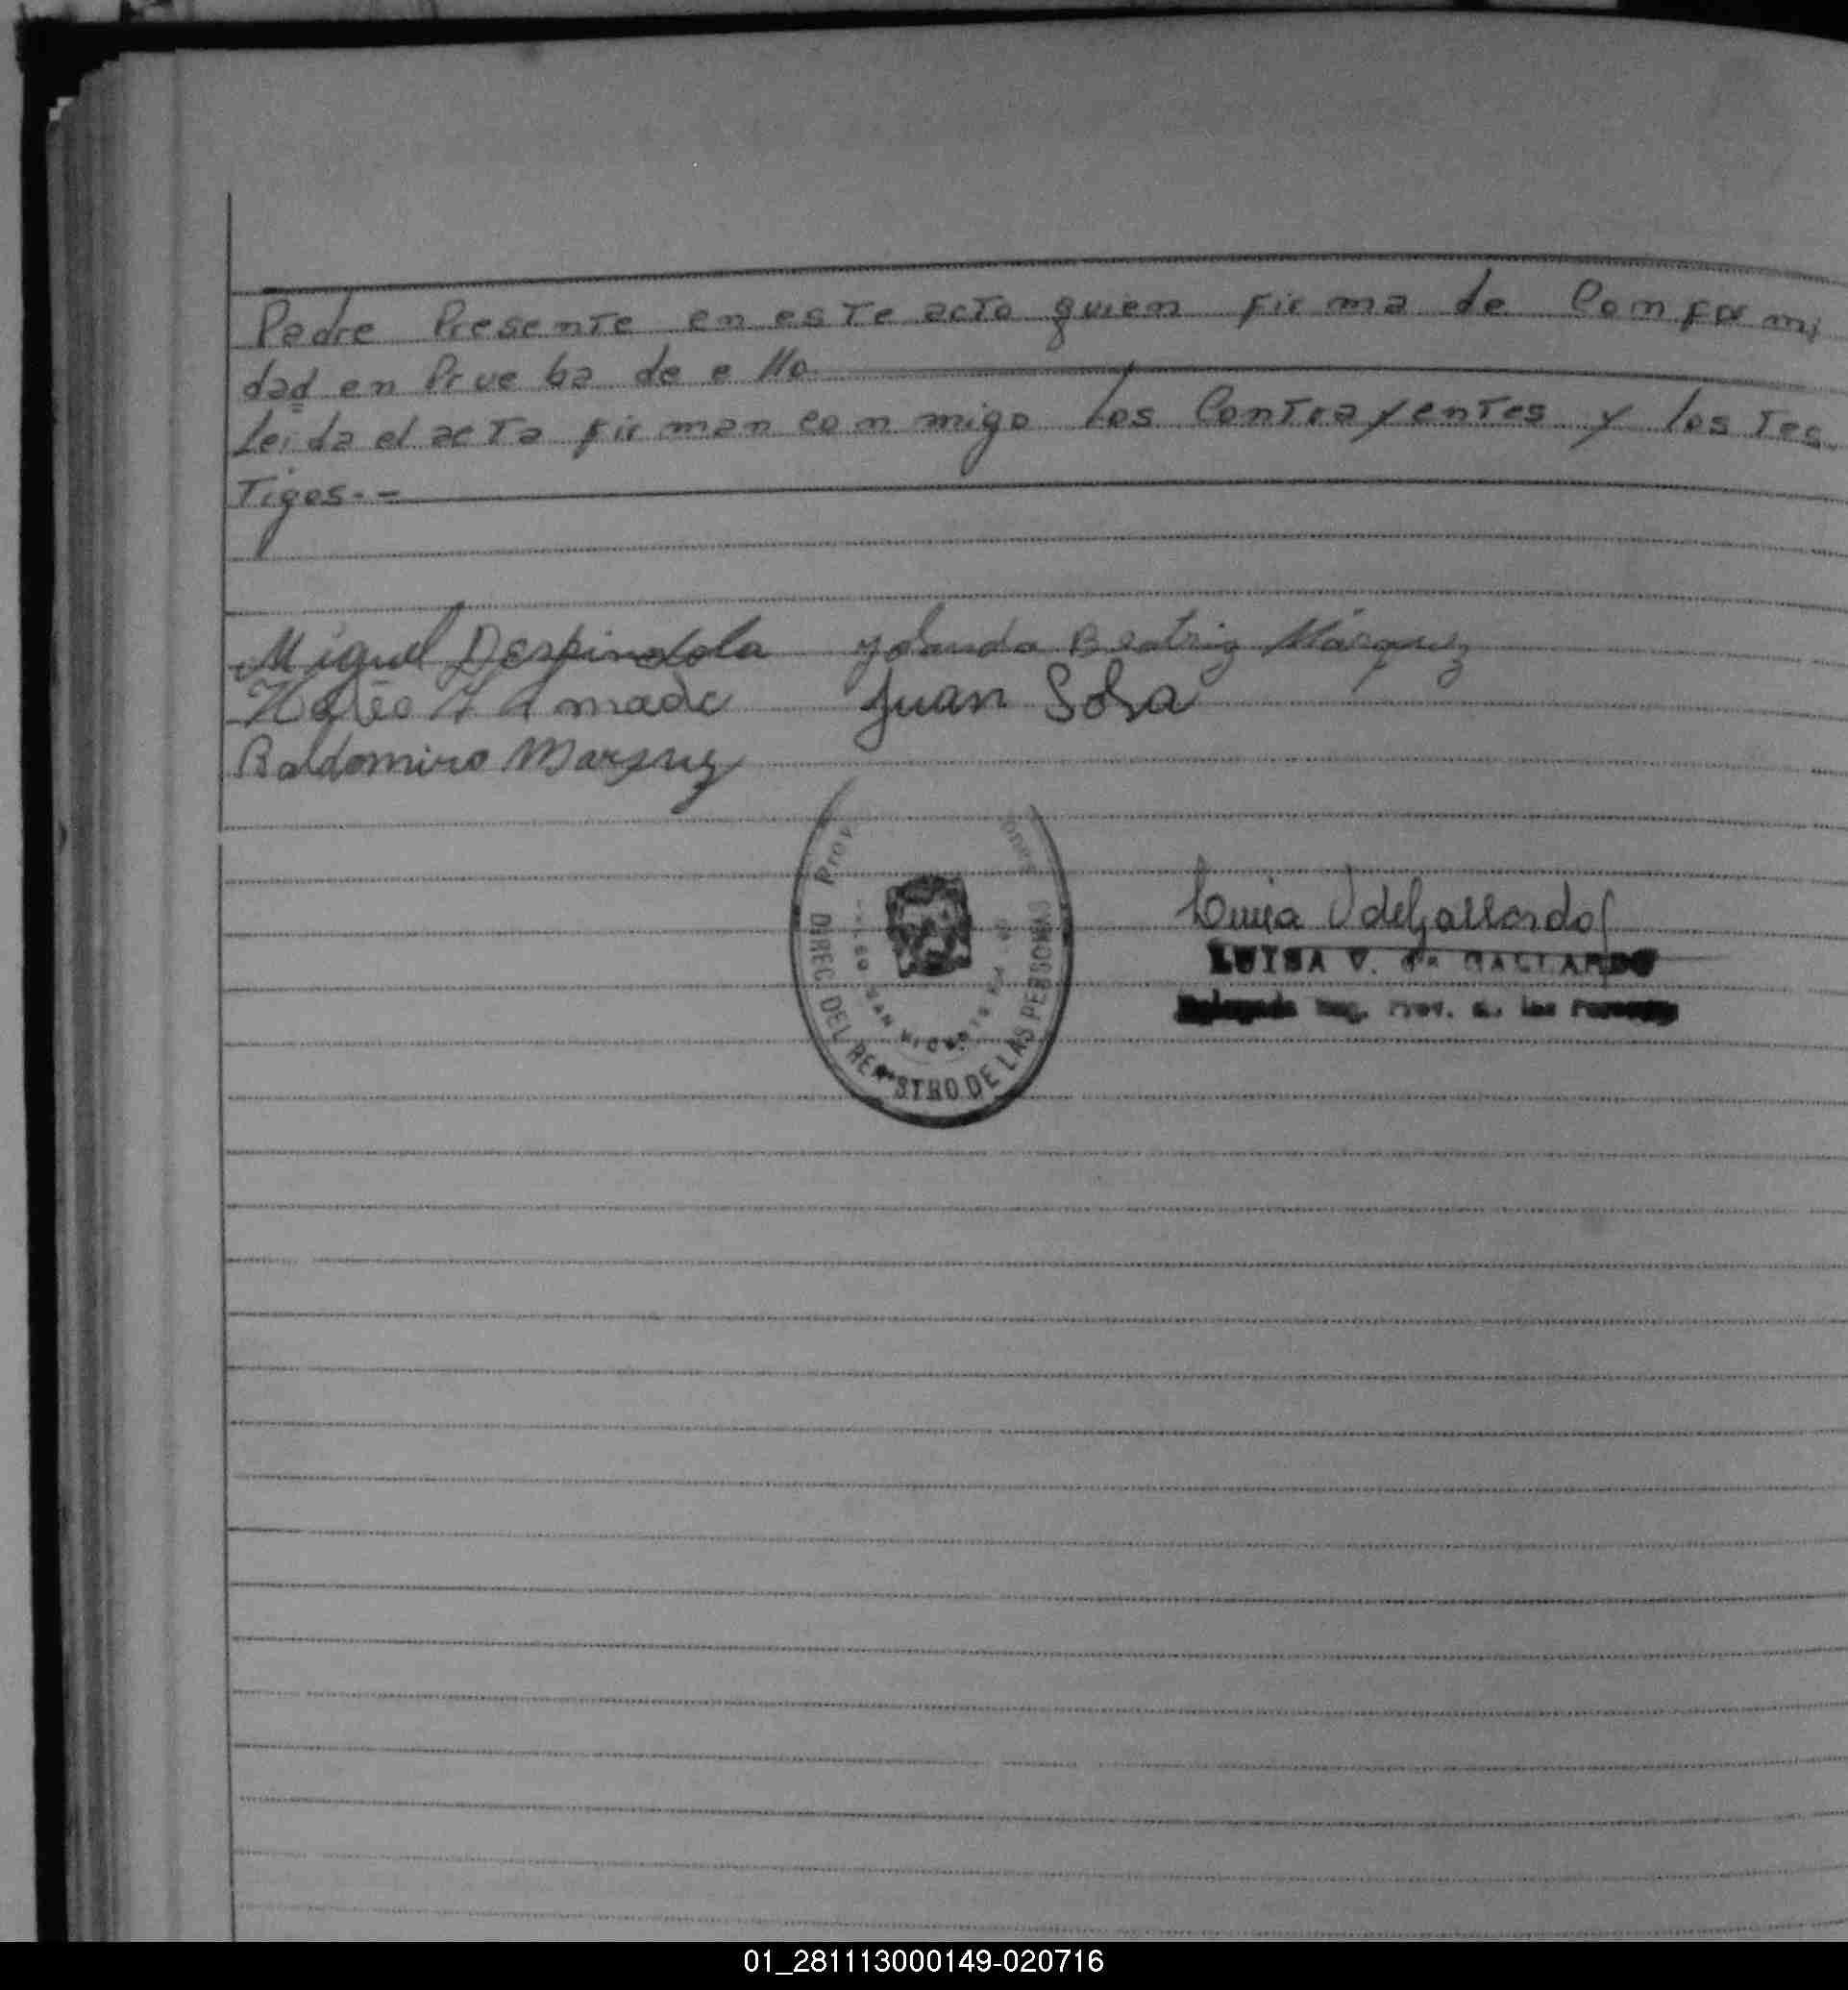 Padre Presente en este acto quien firma de Conformi
dad en Prueba de ello
Leida el acta firman con migo los Contrayentes y los Tes
Tigos.-=
Miguel Despindola Yolanda Beatriz Márquez
Amado Juan Sosa
Baldomiro Marquez
Prov
DIREC. DEL REGISTRO DE LAS PERSONAS
Luisa V de Gallardo
LUISA V. de GALLARDO
Delegada Reg. Prov. de las Personas
01_281113000149-020716